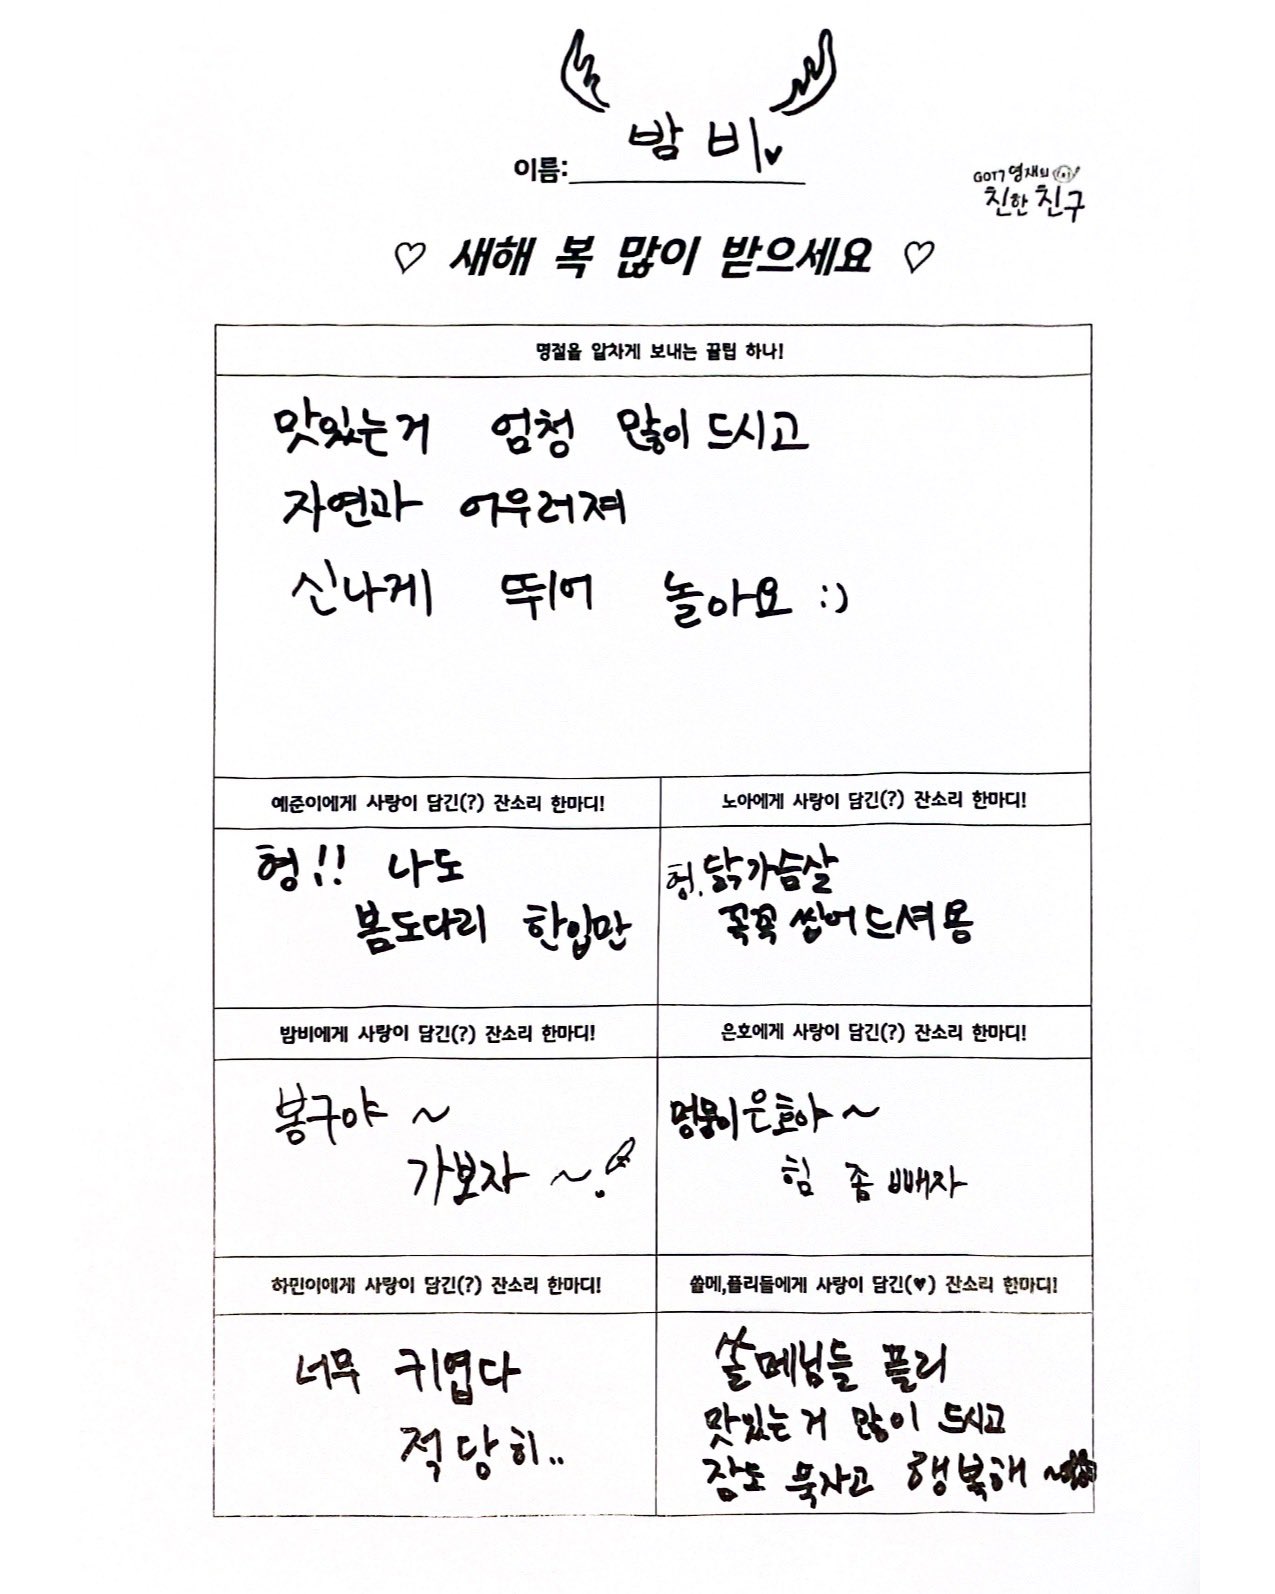 이름: 밤비
GOT7 영재의
친한친구
♡ 새해 복 많이 받으세요 ♡
명절을 알차게 보내는 꿀팁 하나!
맛있는거 엄청 많이 드시고
자연과 어우러져
신나게 뛰어 놀아요 :)
예준이에게 사랑이 담긴(?) 잔소리 한마디!
형!! 나도
봄도다리 한입만
노아에게 사랑이 담긴(?) 잔소리 한마디!
형. 닭가슴살
꼭꼭 씹어드셔용
밤비에게 사랑이 담긴(?) 잔소리 한마디!
봉구야 ~
가보자 ~.
은호에게 사랑이 담긴(?) 잔소리 한마디!
멍뭉이 은호야 ~
힘 좀 빼자
하민이에게 사랑이 담긴(?) 잔소리 한마디!
너무 귀엽다
적당히..
쏠메,플리들에게 사랑이 담긴(♥) 잔소리 한마디!
쏠메님들 플리
맛있는거 많이 드시고
잠도 푹자고 행복해 ~